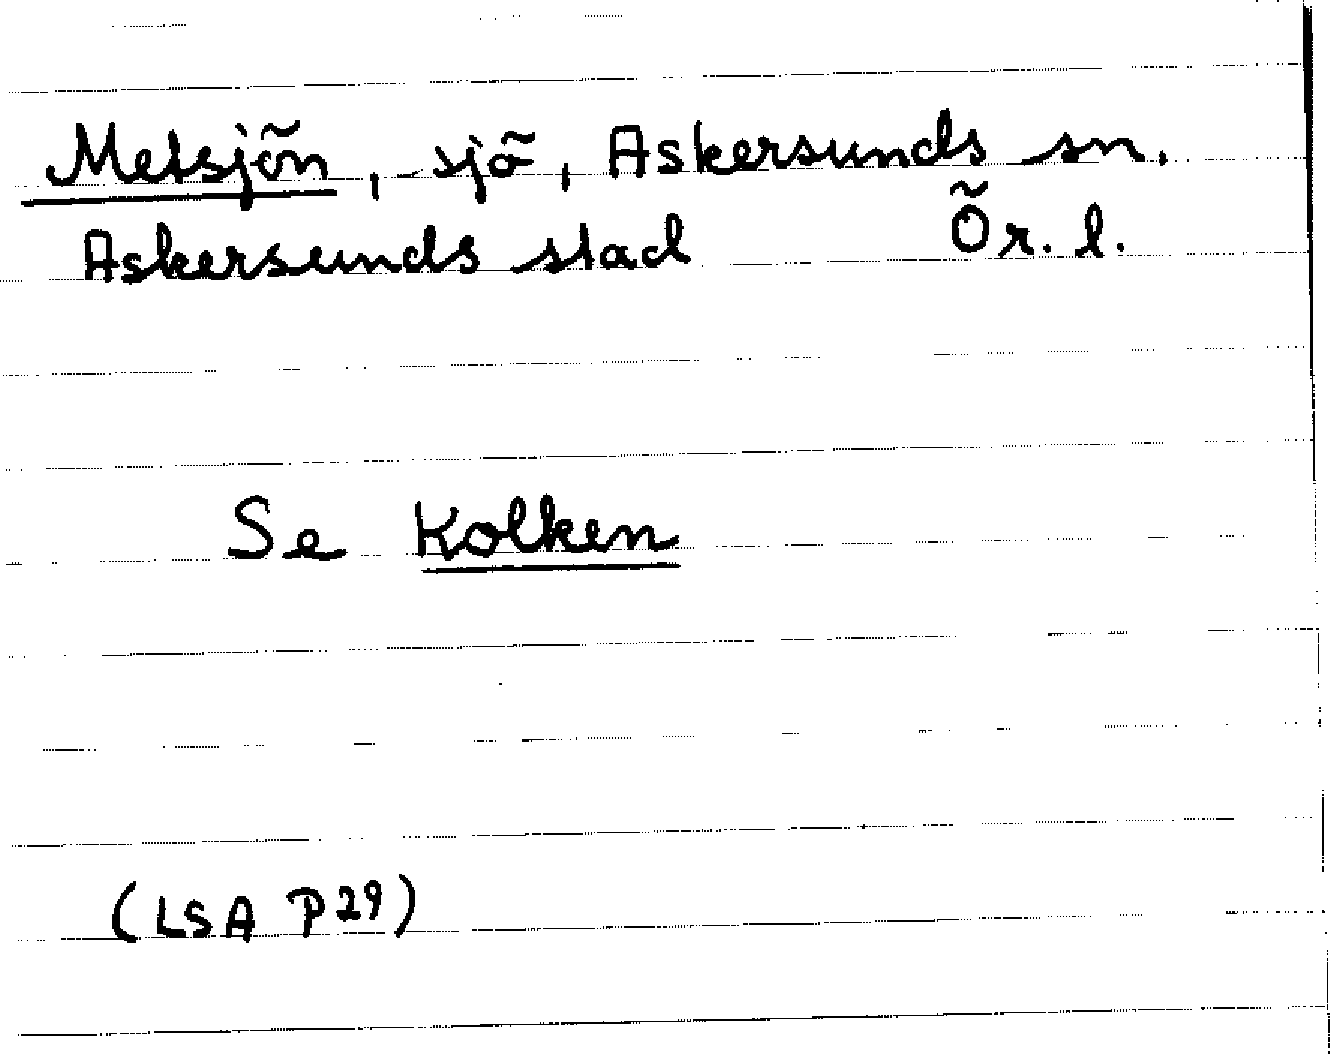 Metsjön, sjö, Askersunds sn.
Askersunds stad Ör. l.
Se Kolken
(LSA P29)